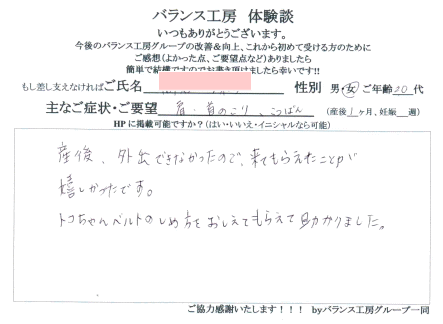 バランス工房 体験談
いつもありがとうございます。
今後のバランス工房グループの改善&向上、これから初めて受ける方のために
ご感想(よかった点、ご要望点など)ありましたら
簡単で結構ですのでお書き頂けましたら幸いです!!
もし差し支えなければご氏名 性別 男・女 ご年齢 20 代
主なご症状・ご要望 肩・首のこり、こつばん (産後 1 ヶ月、妊娠 週)
HPに掲載可能ですか?(はい・いいえ・イニシャルなら可能)
産後、外出できなかったので、来てもらえたことが
嬉しかったです。
トコちゃんベルトのしめ方をおしえてもらえて助かりました。
ご協力感謝いたします!!! byバランス工房グループ一同